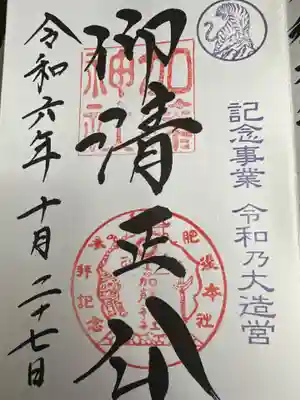 記念事業 令和乃大造営
御清正公
加藤神社
肥後本社
参拝記念
令和六年 十月 二十七日